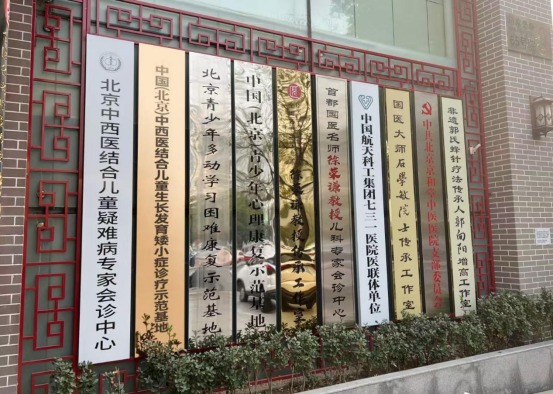 北京中西医结合儿童疑难病专家会诊中心
中国(北京)中西医结合儿童生长发育矮小症诊疗示范基地
北京青少年多动学习困难康复示范基地
中国(北京)青少年心理康复示范基地
教授传承工作室
首都国医名师徐荣谦教授儿科专家会诊中心
中国航天科工集团七三一医院医联体单位
国医大师石学敏院士传承工作室
中共北京京和
中医医院支部委员会
非遗郭氏蜂针疗法传承人郭向阳增高工作室